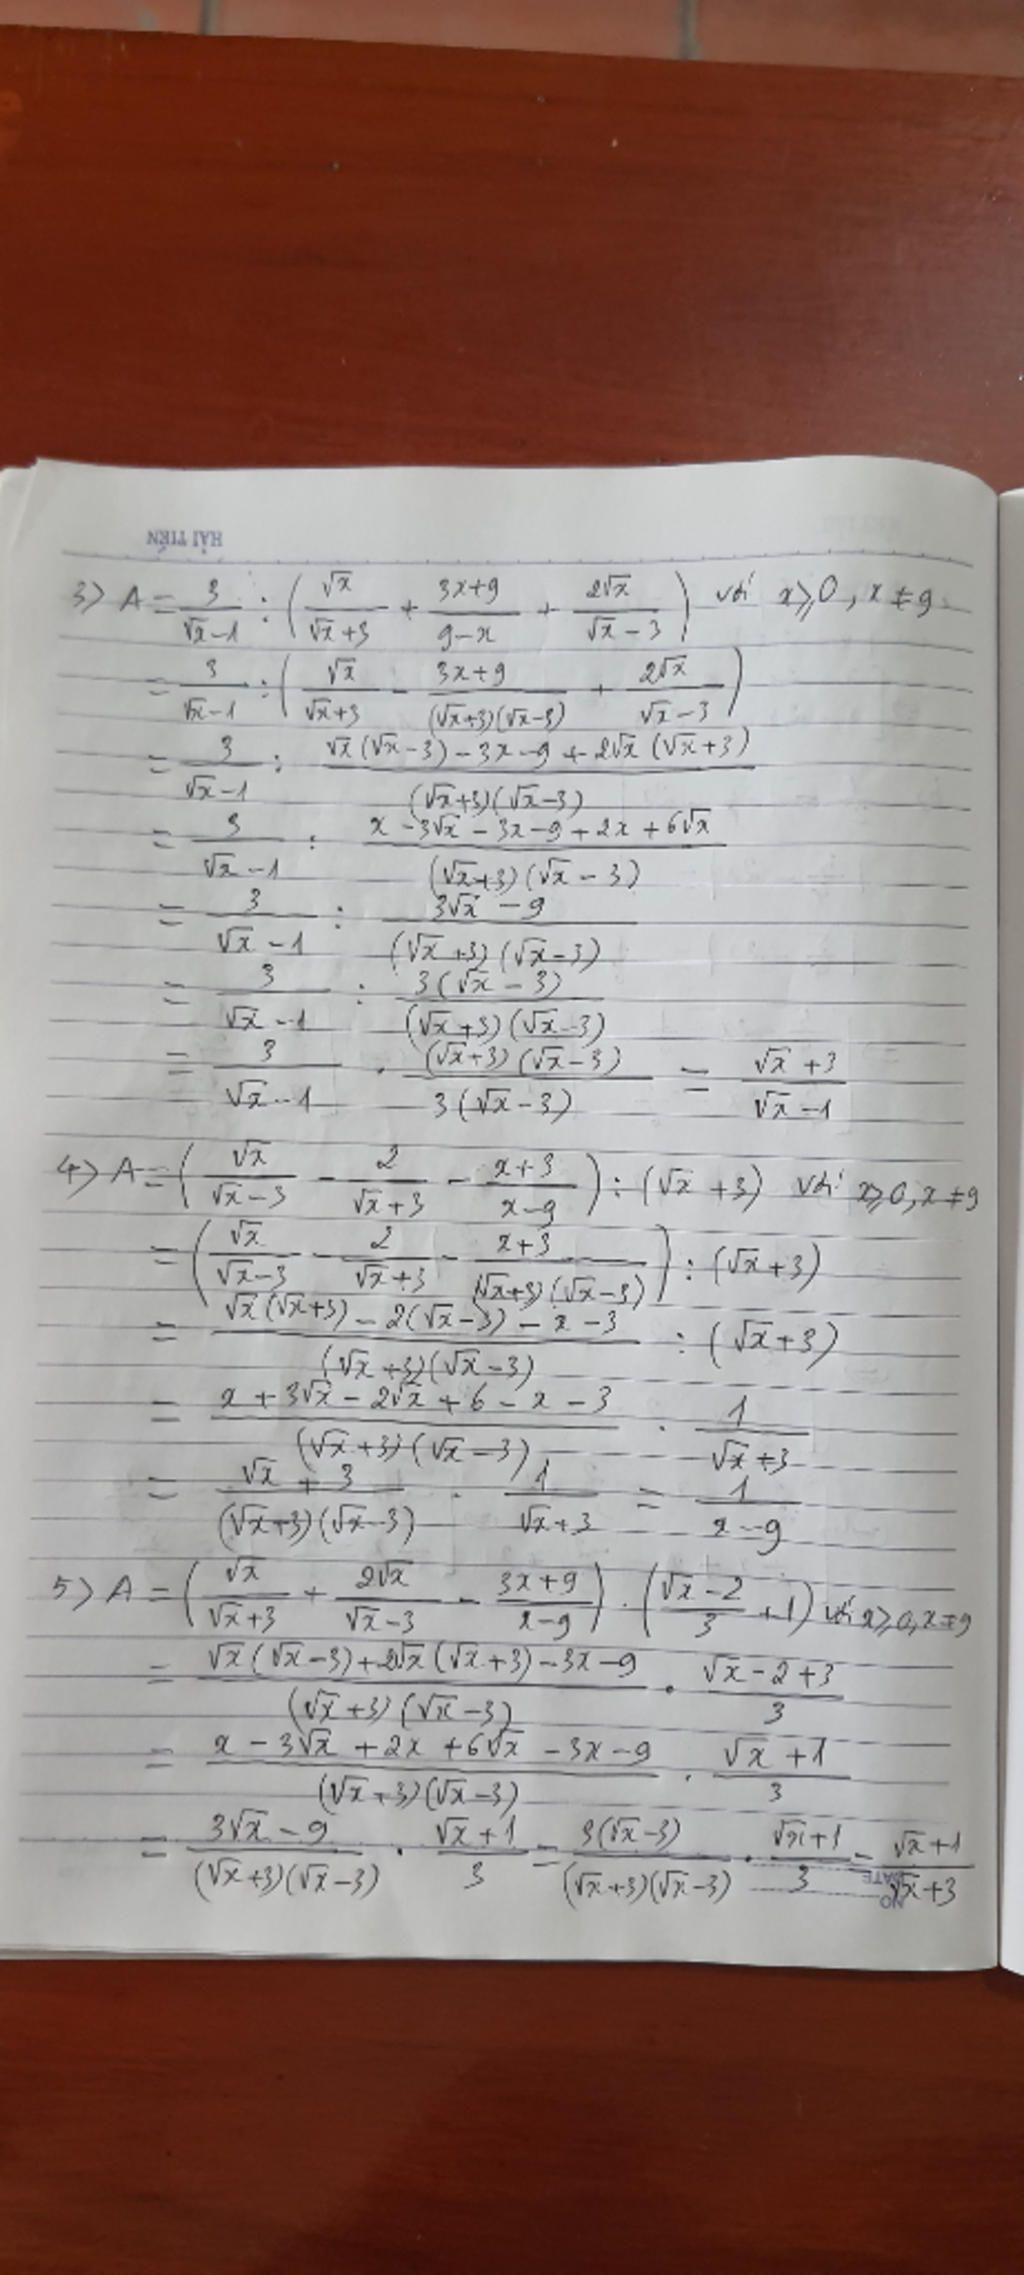 HẢI TIẾN
3> A = 3/(√x-1) : (√x/(√x+3) + (3x+9)/(9-x) + 2√x/(√x-3)) với x⩾0, x≠9
= 3/(√x-1) : (√x/(√x+3) - (3x+9)/((√x+3)(√x-3)) + 2√x/(√x-3))
= 3/(√x-1) : (√x(√x-3) - 3x - 9 + 2√x(√x+3))/((√x+3)(√x-3))
= 3/(√x-1) : (x - 3√x - 3x - 9 + 2x + 6√x)/((√x+3)(√x-3))
= 3/(√x-1) : (3√x - 9)/((√x+3)(√x-3))
= 3/(√x-1) : 3(√x-3)/((√x+3)(√x-3))
= 3/(√x-1) . (√x+3)(√x-3)/(3(√x-3)) = (√x+3)/(√x-1)
4> A = (√x/(√x-3) - 2/(√x+3) - (x+3)/(x-9)) : (√x+3) với x⩾0, x≠9
= (√x/(√x-3) - 2/(√x+3) - (x+3)/((√x+3)(√x-3))) : (√x+3)
= (√x(√x+3) - 2(√x-3) - x - 3)/((√x+3)(√x-3)) : (√x+3)
= (x + 3√x - 2√x + 6 - x - 3)/((√x+3)(√x-3)) . 1/(√x+3)
= (√x+3)/((√x+3)(√x-3)) . 1/(√x+3) = 1/(x-9)
5> A = (√x/(√x+3) + 2√x/(√x-3) - (3x+9)/(x-9)) . ((√x-2)/3 + 1) với x⩾0, x≠9
= (√x(√x-3) + 2√x(√x+3) - 3x - 9)/((√x+3)(√x-3)) . (√x-2+3)/3
= (x - 3√x + 2x + 6√x - 3x - 9)/((√x+3)(√x-3)) . (√x+1)/3
= (3√x-9)/((√x+3)(√x-3)) . (√x+1)/3 = 3(√x-3)/((√x+3)(√x-3)) . (√x+1)/3 = (√x+1)/(√x+3)
DATE
NO